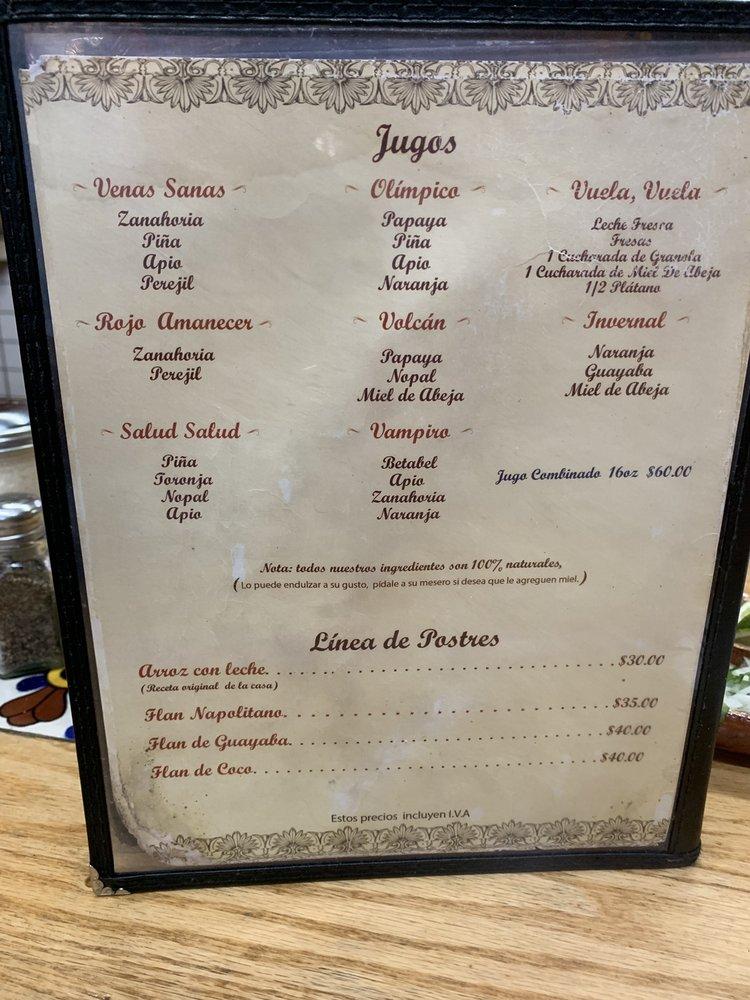 Jugos
Venas Sanas
Zanahoria
Piña
Apio
Perejil
Olímpico
Papaya
Piña
Apio
Naranja
Vuela, Vuela
Leche Fresca
Fresas
1 Cucharada de Granola
1 Cucharada de Miel De Abeja
1/2 Plátano
Rojo Amanecer
Zanahoria
Perejil
Volcán
Papaya
Nopal
Miel de Abeja
Invernal
Naranja
Guayaba
Miel de Abeja
Salud Salud
Piña
Toronja
Nopal
Apio
Vampiro
Betabel
Apio
Zanahoria
Naranja
Jugo Combinado 16oz $60.00
Nota: todos nuestros ingredientes son 100% naturales,
(Lo puede endulzar a su gusto, pídale a su mesero si desea que le agreguen miel.)
Línea de Postres
Arroz con leche. . . . . . . . . . . . . . . . . . . . . . . . . . . . . . . . . . $30.00
(Receta original de la casa)
Flan Napolitano. . . . . . . . . . . . . . . . . . . . . . . . . . . . . . . . $35.00
Flan de Guayaba. . . . . . . . . . . . . . . . . . . . . . . . . . . . . . . $40.00
Flan de Coco. . . . . . . . . . . . . . . . . . . . . . . . . . . . . . . . . . $40.00
Estos precios incluyen I.V.A